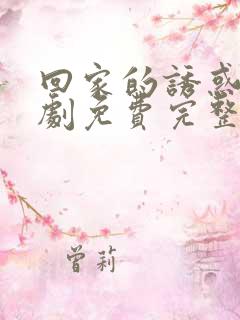 回家的誘惑
劇免費完整
曾莉